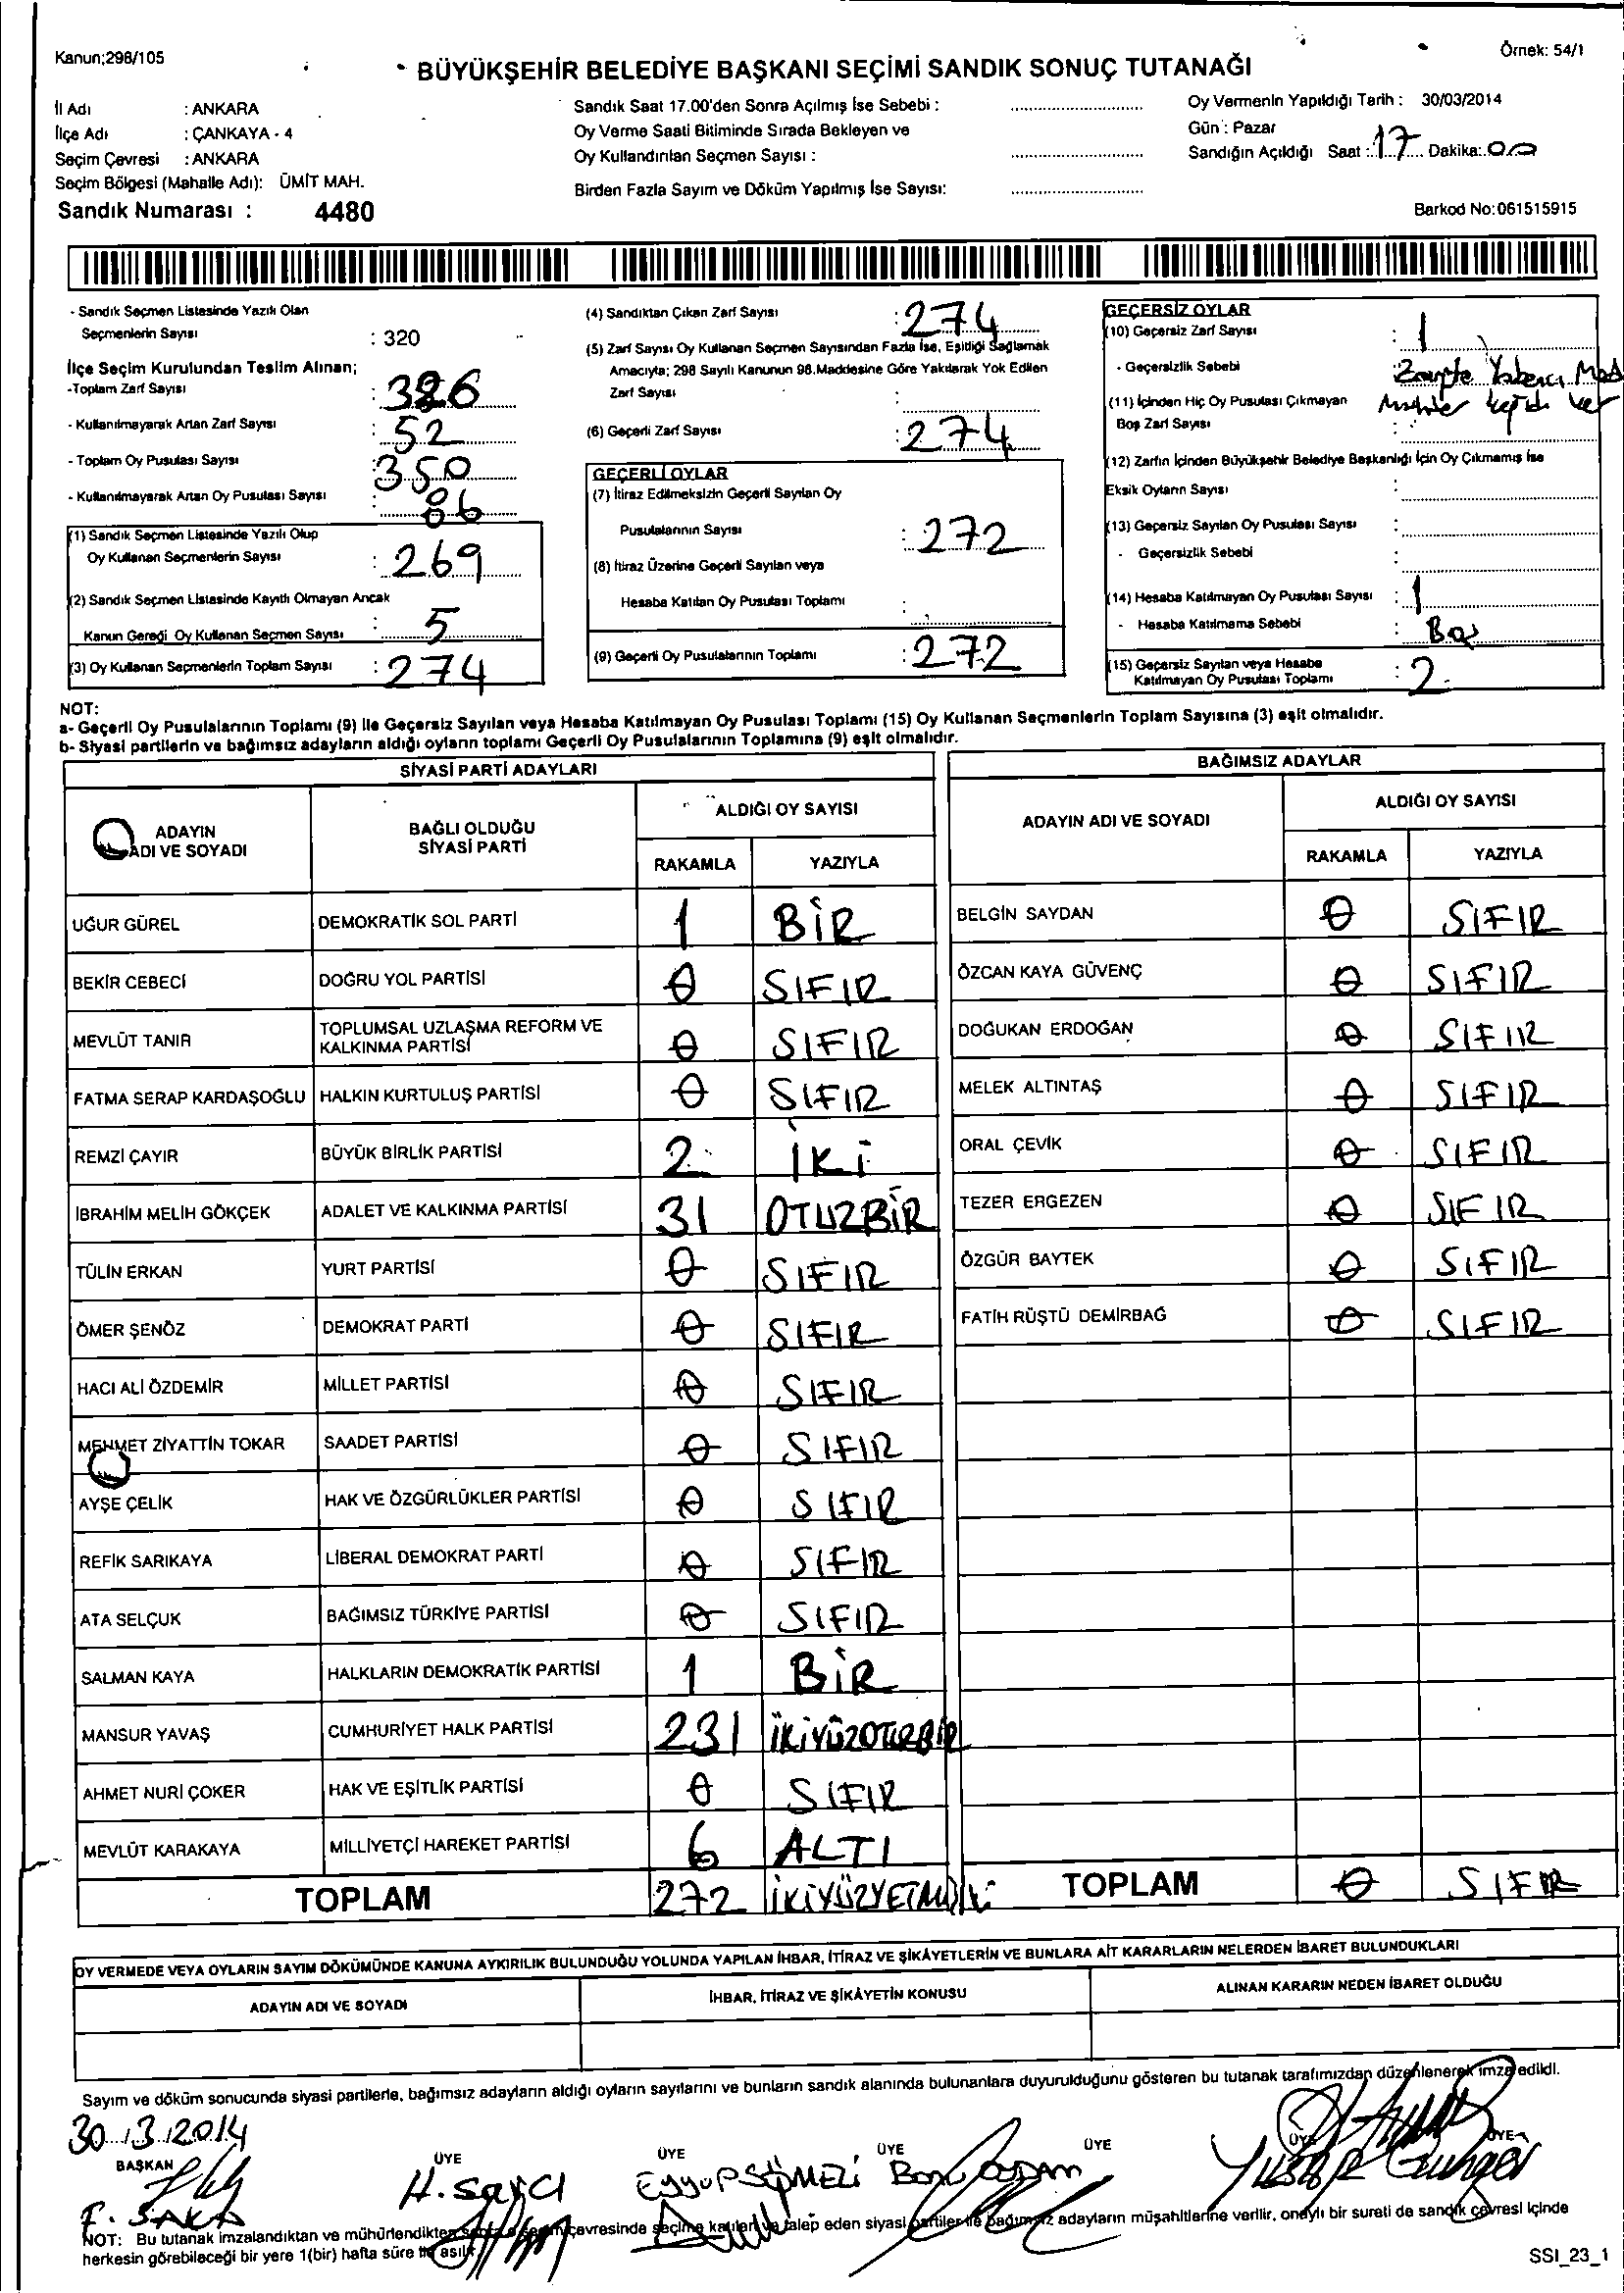 Kanun;298/105
Örnek: 54/1
BÜYÜKŞEHİR BELEDİYE BAŞKANI SEÇİMİ SANDIK SONUÇ TUTANAĞI
İl Adı : ANKARA
İlçe Adı : ÇANKAYA - 4
Seçim Çevresi : ANKARA
Seçim Bölgesi (Mahalle Adı): ÜMİT MAH.
Sandık Numarası : 4480
Sandık Saat 17.00'den Sonra Açılmış İse Sebebi :
Oy Verme Saati Bitiminde Sırada Bekleyen ve
Oy Kullandırılan Seçmen Sayısı :
Birden Fazla Sayım ve Döküm Yapılmış İse Sayısı:
Oy Vermenin Yapıldığı Tarih : 30/03/2014
Gün : Pazar
Sandığın Açıldığı Saat : 17 Dakika: 00
Barkod No:061515915
- Sandık Seçmen Listesinde Yazılı Olan
Seçmenlerin Sayısı : 320
İlçe Seçim Kurulundan Teslim Alınan;
-Toplam Zarf Sayısı : 326
- Kullanılmayarak Artan Zarf Sayısı : 52
- Toplam Oy Pusulası Sayısı : 350
- Kullanılmayarak Artan Oy Pusulası Sayısı : 86
(1) Sandık Seçmen Listesinde Yazılı Olup
Oy Kullanan Seçmenlerin Sayısı : 269
(2) Sandık Seçmen Listesinde Kayıtlı Olmayan Ancak
Kanun Gereği Oy Kullanan Seçmen Sayısı : 5
(3) Oy Kullanan Seçmenlerin Toplam Sayısı : 274
(4) Sandıktan Çıkan Zarf Sayısı : 274
(5) Zarf Sayısı Oy Kullanan Seçmen Sayısından Fazla İse, Eşitliği Sağlamak
Amacıyla; 298 Sayılı Kanunun 98.Maddesine Göre Yakılarak Yok Edilen
Zarf Sayısı :
(6) Geçerli Zarf Sayısı : 274
GEÇERLİ OYLAR
(7) İtiraz Edilmeksizin Geçerli Sayılan Oy
Pusulalarının Sayısı : 272
(8) İtiraz Üzerine Geçerli Sayılan veya
Hesaba Katılan Oy Pusulası Toplamı :
(9) Geçerli Oy Pusulalarının Toplamı : 272
GEÇERSİZ OYLAR
(10) Geçersiz Zarf Sayısı : 1
- Geçersizlik Sebebi : Yabancı
(11) İçinden Hiç Oy Pusulası Çıkmayan
Boş Zarf Sayısı :
(12) Zarfın İçinden Büyükşehir Belediye Başkanlığı İçin Oy Çıkmamış İse
Eksik Oyların Sayısı :
(13) Geçersiz Sayılan Oy Pusulası Sayısı :
- Geçersizlik Sebebi :
(14) Hesaba Katılmayan Oy Pusulası Sayısı : 1
- Hesaba Katılmama Sebebi : Boş
(15) Geçersiz Sayılan veya Hesaba
Katılmayan Oy Pusulası Toplamı : 2
NOT:
a- Geçerli Oy Pusulalarının Toplamı (9) ile Geçersiz Sayılan veya Hesaba Katılmayan Oy Pusulası Toplamı (15) Oy Kullanan Seçmenlerin Toplam Sayısına (3) eşit olmalıdır.
b- Siyasi partilerin ve bağımsız adayların aldığı oyların toplamı Geçerli Oy Pusulalarının Toplamına (9) eşit olmalıdır.
SİYASİ PARTİ ADAYLARI
ADAYIN ADI VE SOYADI BAĞLI OLDUĞU SİYASİ PARTİ ALDIĞI OY SAYISI
RAKAMLA YAZIYLA
UĞUR GÜREL DEMOKRATİK SOL PARTİ 1 BİR
BEKİR CEBECİ DOĞRU YOL PARTİSİ 0 SIFIR
MEVLÜT TANIR TOPLUMSAL UZLAŞMA REFORM VE KALKINMA PARTİSİ 0 SIFIR
FATMA SERAP KARDAŞOĞLU HALKIN KURTULUŞ PARTİSİ 0 SIFIR
REMZİ ÇAYIR BÜYÜK BİRLİK PARTİSİ 2 İKİ
İBRAHİM MELİH GÖKÇEK ADALET VE KALKINMA PARTİSİ 31 OTUZBİR
TÜLİN ERKAN YURT PARTİSİ 0 SIFIR
ÖMER ŞENÖZ DEMOKRAT PARTİ 0 SIFIR
HACI ALİ ÖZDEMİR MİLLET PARTİSİ 0 SIFIR
MEHMET ZİYATTİN TOKAR SAADET PARTİSİ 0 SIFIR
AYŞE ÇELİK HAK VE ÖZGÜRLÜKLER PARTİSİ 0 SIFIR
REFİK SARIKAYA LİBERAL DEMOKRAT PARTİ 0 SIFIR
ATA SELÇUK BAĞIMSIZ TÜRKİYE PARTİSİ 0 SIFIR
SALMAN KAYA HALKLARIN DEMOKRATİK PARTİSİ 1 BİR
MANSUR YAVAŞ CUMHURİYET HALK PARTİSİ 231 İKİYÜZOTUZBİR
AHMET NURİ ÇOKER HAK VE EŞİTLİK PARTİSİ 0 SIFIR
MEVLÜT KARAKAYA MİLLİYETÇİ HAREKET PARTİSİ 6 ALTI
TOPLAM 272 İKİYÜZYETMİŞİKİ
BAĞIMSIZ ADAYLAR
ADAYIN ADI VE SOYADI ALDIĞI OY SAYISI
RAKAMLA YAZIYLA
BELGİN SAYDAN 0 SIFIR
ÖZCAN KAYA GÜVENÇ 0 SIFIR
DOĞUKAN ERDOĞAN 0 SIFIR
MELEK ALTINTAŞ 0 SIFIR
ORAL ÇEVİK 0 SIFIR
TEZER ERGEZEN 0 SIFIR
ÖZGÜR BAYTEK 0 SIFIR
FATİH RÜŞTÜ DEMİRBAĞ 0 SIFIR
TOPLAM 0 SIFIR
OY VERMEDE VEYA OYLARIN SAYIM DÖKÜMÜNDE KANUNA AYKIRILIK BULUNDUĞU YOLUNDA YAPILAN İHBAR, İTİRAZ VE ŞİKÂYETLERİN VE BUNLARA AİT KARARLARIN NELERDEN İBARET BULUNDUKLARI
ADAYIN ADI VE SOYADI İHBAR, İTİRAZ VE ŞİKÂYETİN KONUSU ALINAN KARARIN NEDEN İBARET OLDUĞU
Sayım ve döküm sonucunda siyasi partilerle, bağımsız adayların aldığı oyların sayılarını ve bunların sandık alanında bulunanlara duyurulduğunu gösteren bu tutanak tarafımızdan düzenlenerek imza edildi.
30/3/2014
BAŞKAN ÜYE ÜYE ÜYE ÜYE ÜYE ÜYE
F. SAKA
H. Sarıcı EYYUP
NOT: Bu tutanak imzalandıktan ve mühürlendikten sonra o seçim çevresinde seçime katılan ve talep eden siyasi partiler ile bağımsız adayların müşahitlerine verilir, onaylı bir sureti de sandık çevresi içinde
herkesin görebileceği bir yere 1(bir) hafta süre ile asılır.
SSI_23_1